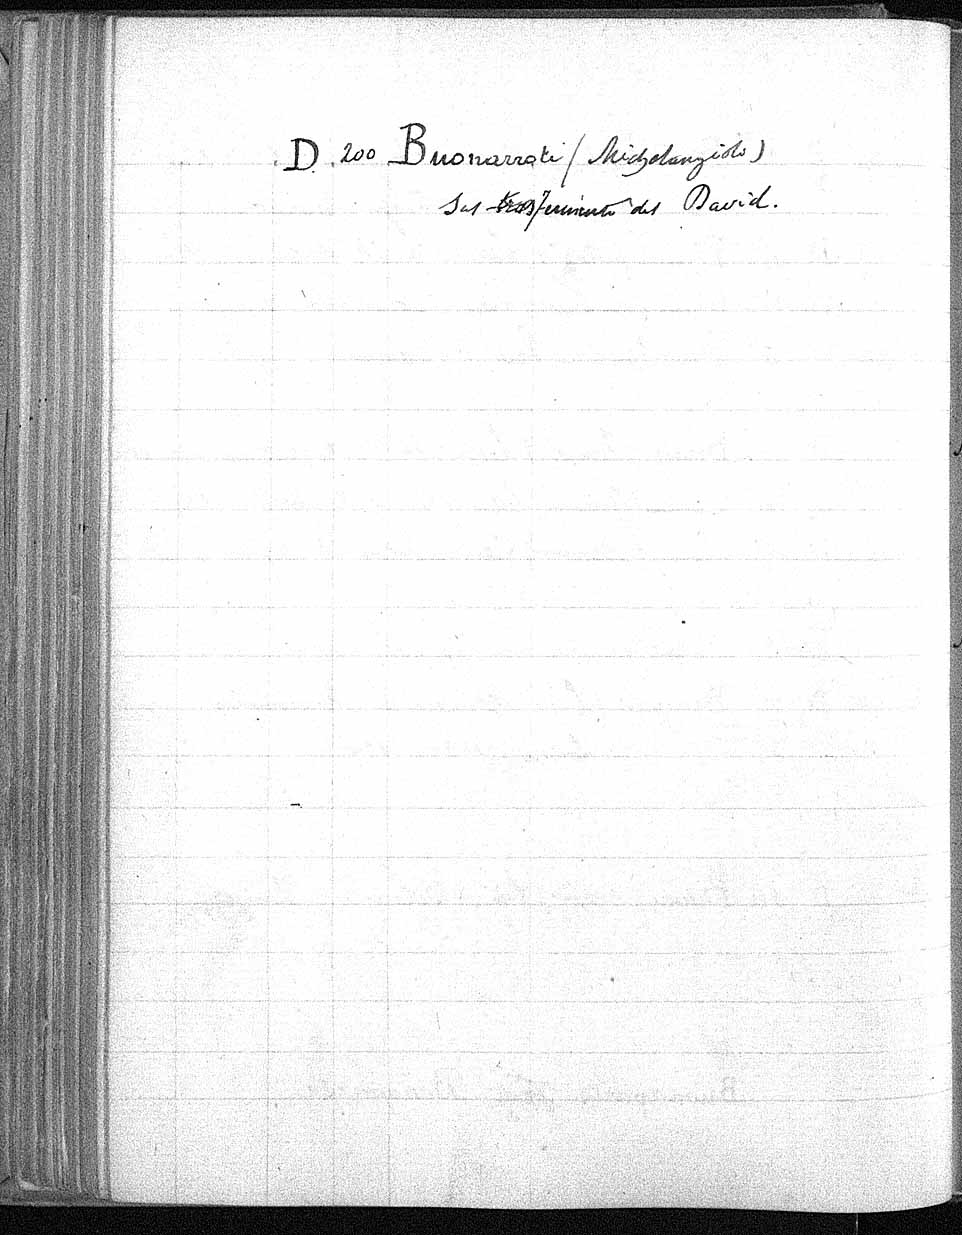 D. 200 Buonarroti (Michelangiolo)
Sul trasferimento del David.